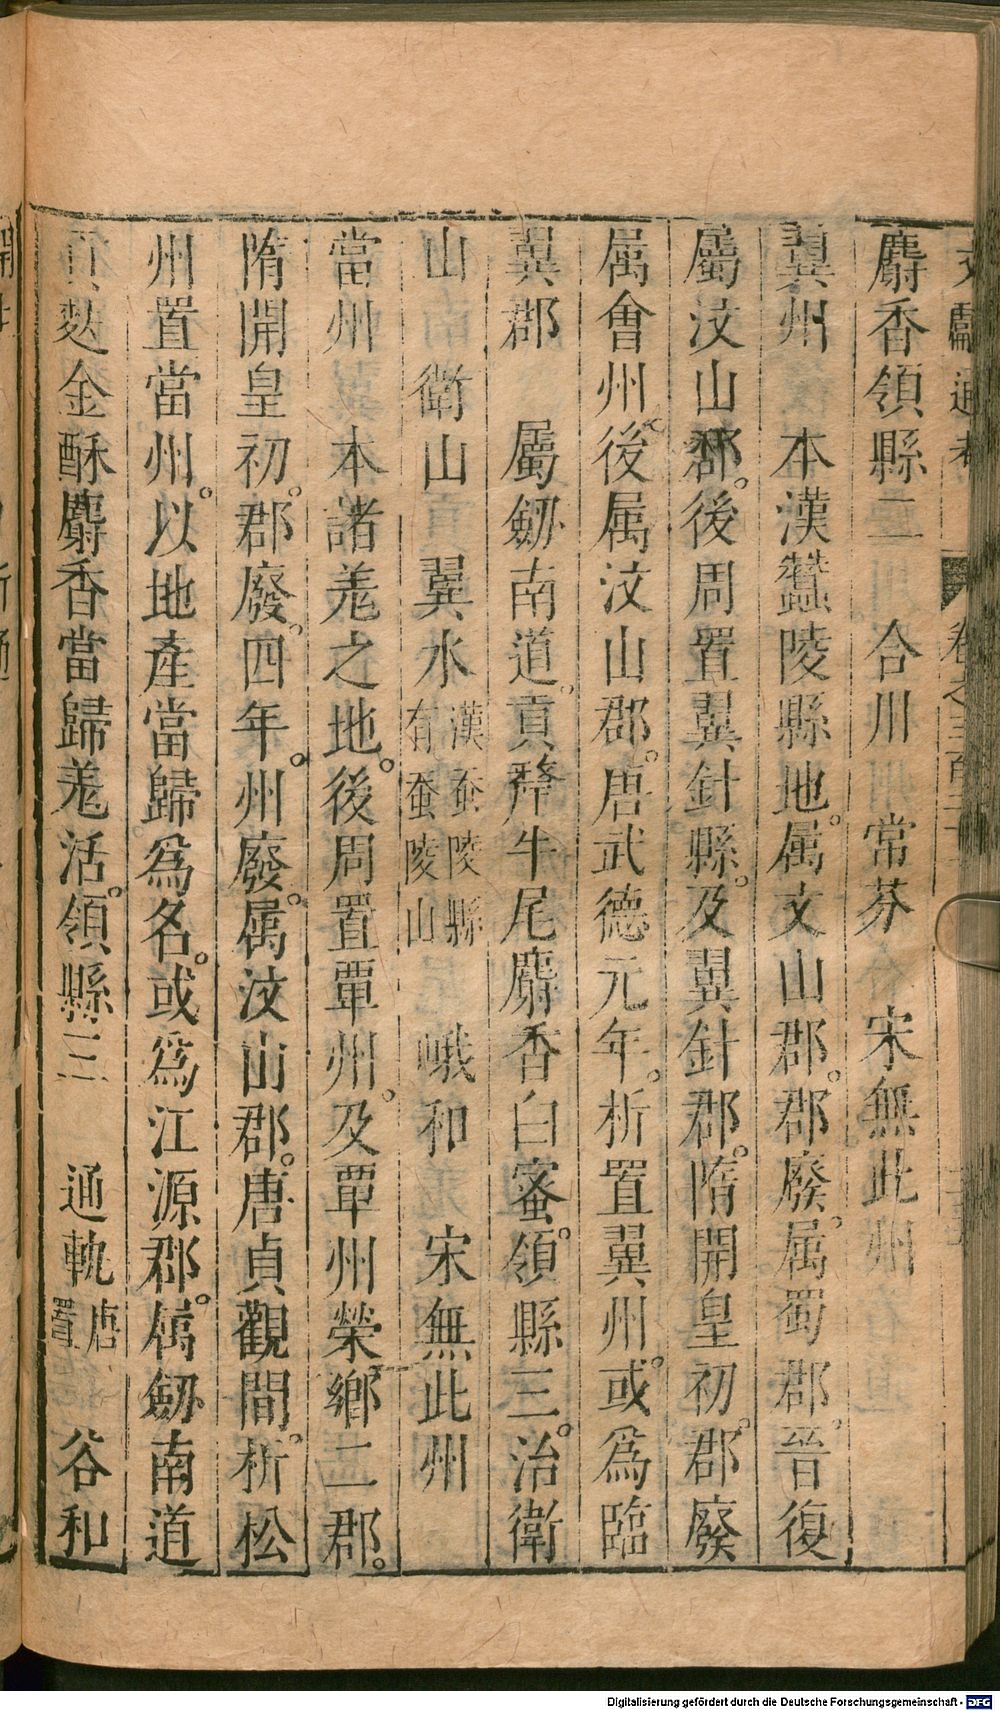 文獻通考 卷之三百二十
麝香領縣二 合川 常芬 宋無此州
翼州 本漢蠶陵縣地。属文山郡。郡廢。属蜀郡。晉復
屬汶山郡。後周置翼針縣。及翼針郡。隋開皇初。郡廢
属會州。後属汶山郡。唐武德元年。析置翼州。或為臨
翼郡 屬劒南道。貢犛牛尾麝香白蜜。領縣三。治衛
山 衛山 翼水 漢蚕陵縣有蚕陵山 峨和 宋無此州
當州 本諸羗之地。後周置覃州。及覃州榮鄉二郡。
隋開皇初。郡廢。四年。州廢。属汶山郡。唐貞觀間。析松
州置當州。以地產當歸為名。或為江源郡。属劒南道
貢麩金酥麝香當歸羗活。領縣三 通軌 唐置 谷和
Digitalisierung gefördert durch die Deutsche Forschungsgemeinschaft - DFG